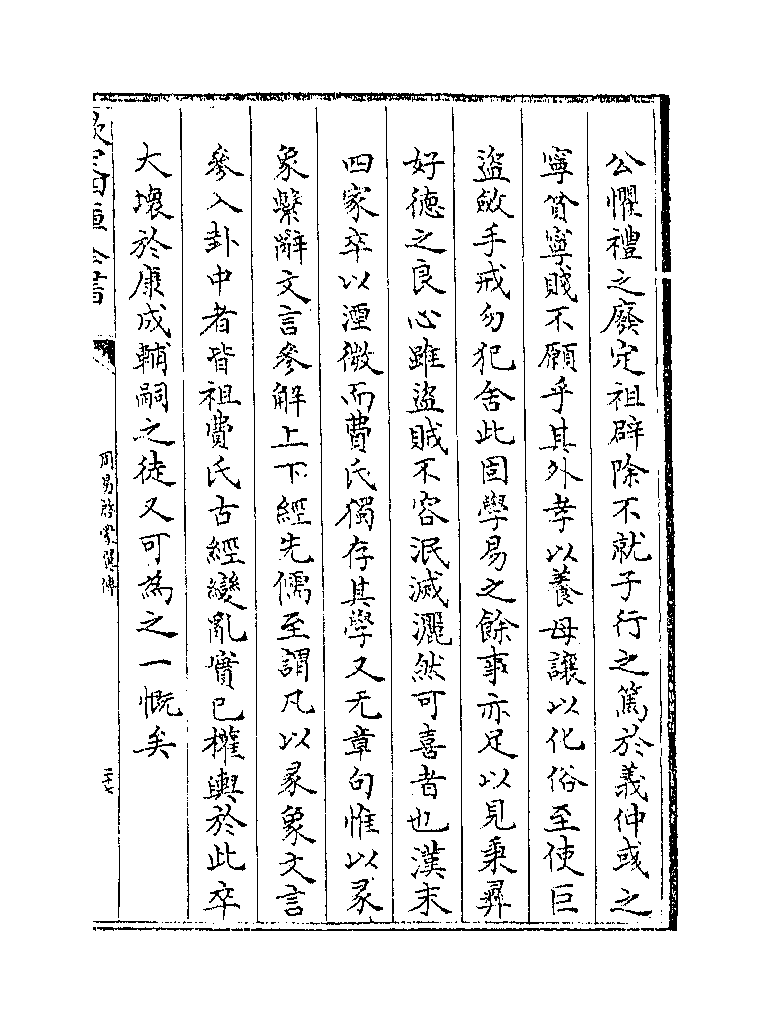 公懼禮之廢定祖辟除不就子行之篤於義仲彧之
寧貧寧賤不願乎其外孝以養母讓以化俗至使巨
盜斂手戒勿犯舍此固學易之餘事亦足以見秉彛
好德之良心雖盜賊不容泯滅灑然可喜者也漢末
四家卒以湮微而費氏獨存其學又无章句惟以彖
象繫辭文言參解上下經先儒至謂凡以彖象文言
參入卦中者皆祖費氏古經變亂實已權輿於此卒
大壞於康成輔嗣之徒又可為之一慨矣
欽定四庫全書
周易啓蒙翼傳
三十七